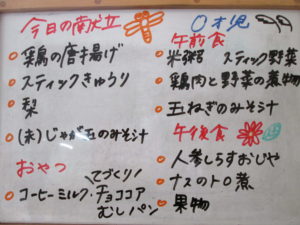 今日の献立
鶏の唐揚げ
スティックきゅうり
梨
(未)じゃが玉のみそ汁
おやつ
てづくり
コーヒーミルク・チョココア
むしパン
0才児
午前食
米粥 スティック野菜
鶏肉と野菜の煮物
玉ねぎのみそ汁
午後食
人参しらすおじや
ナスのトロ煮
果物